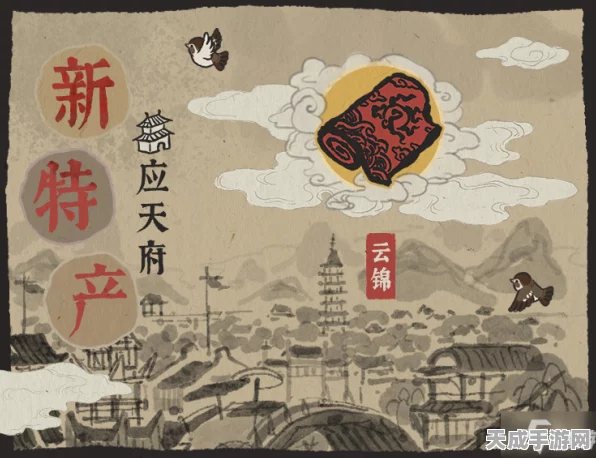 新特产
应天府
云锦
天成手游网